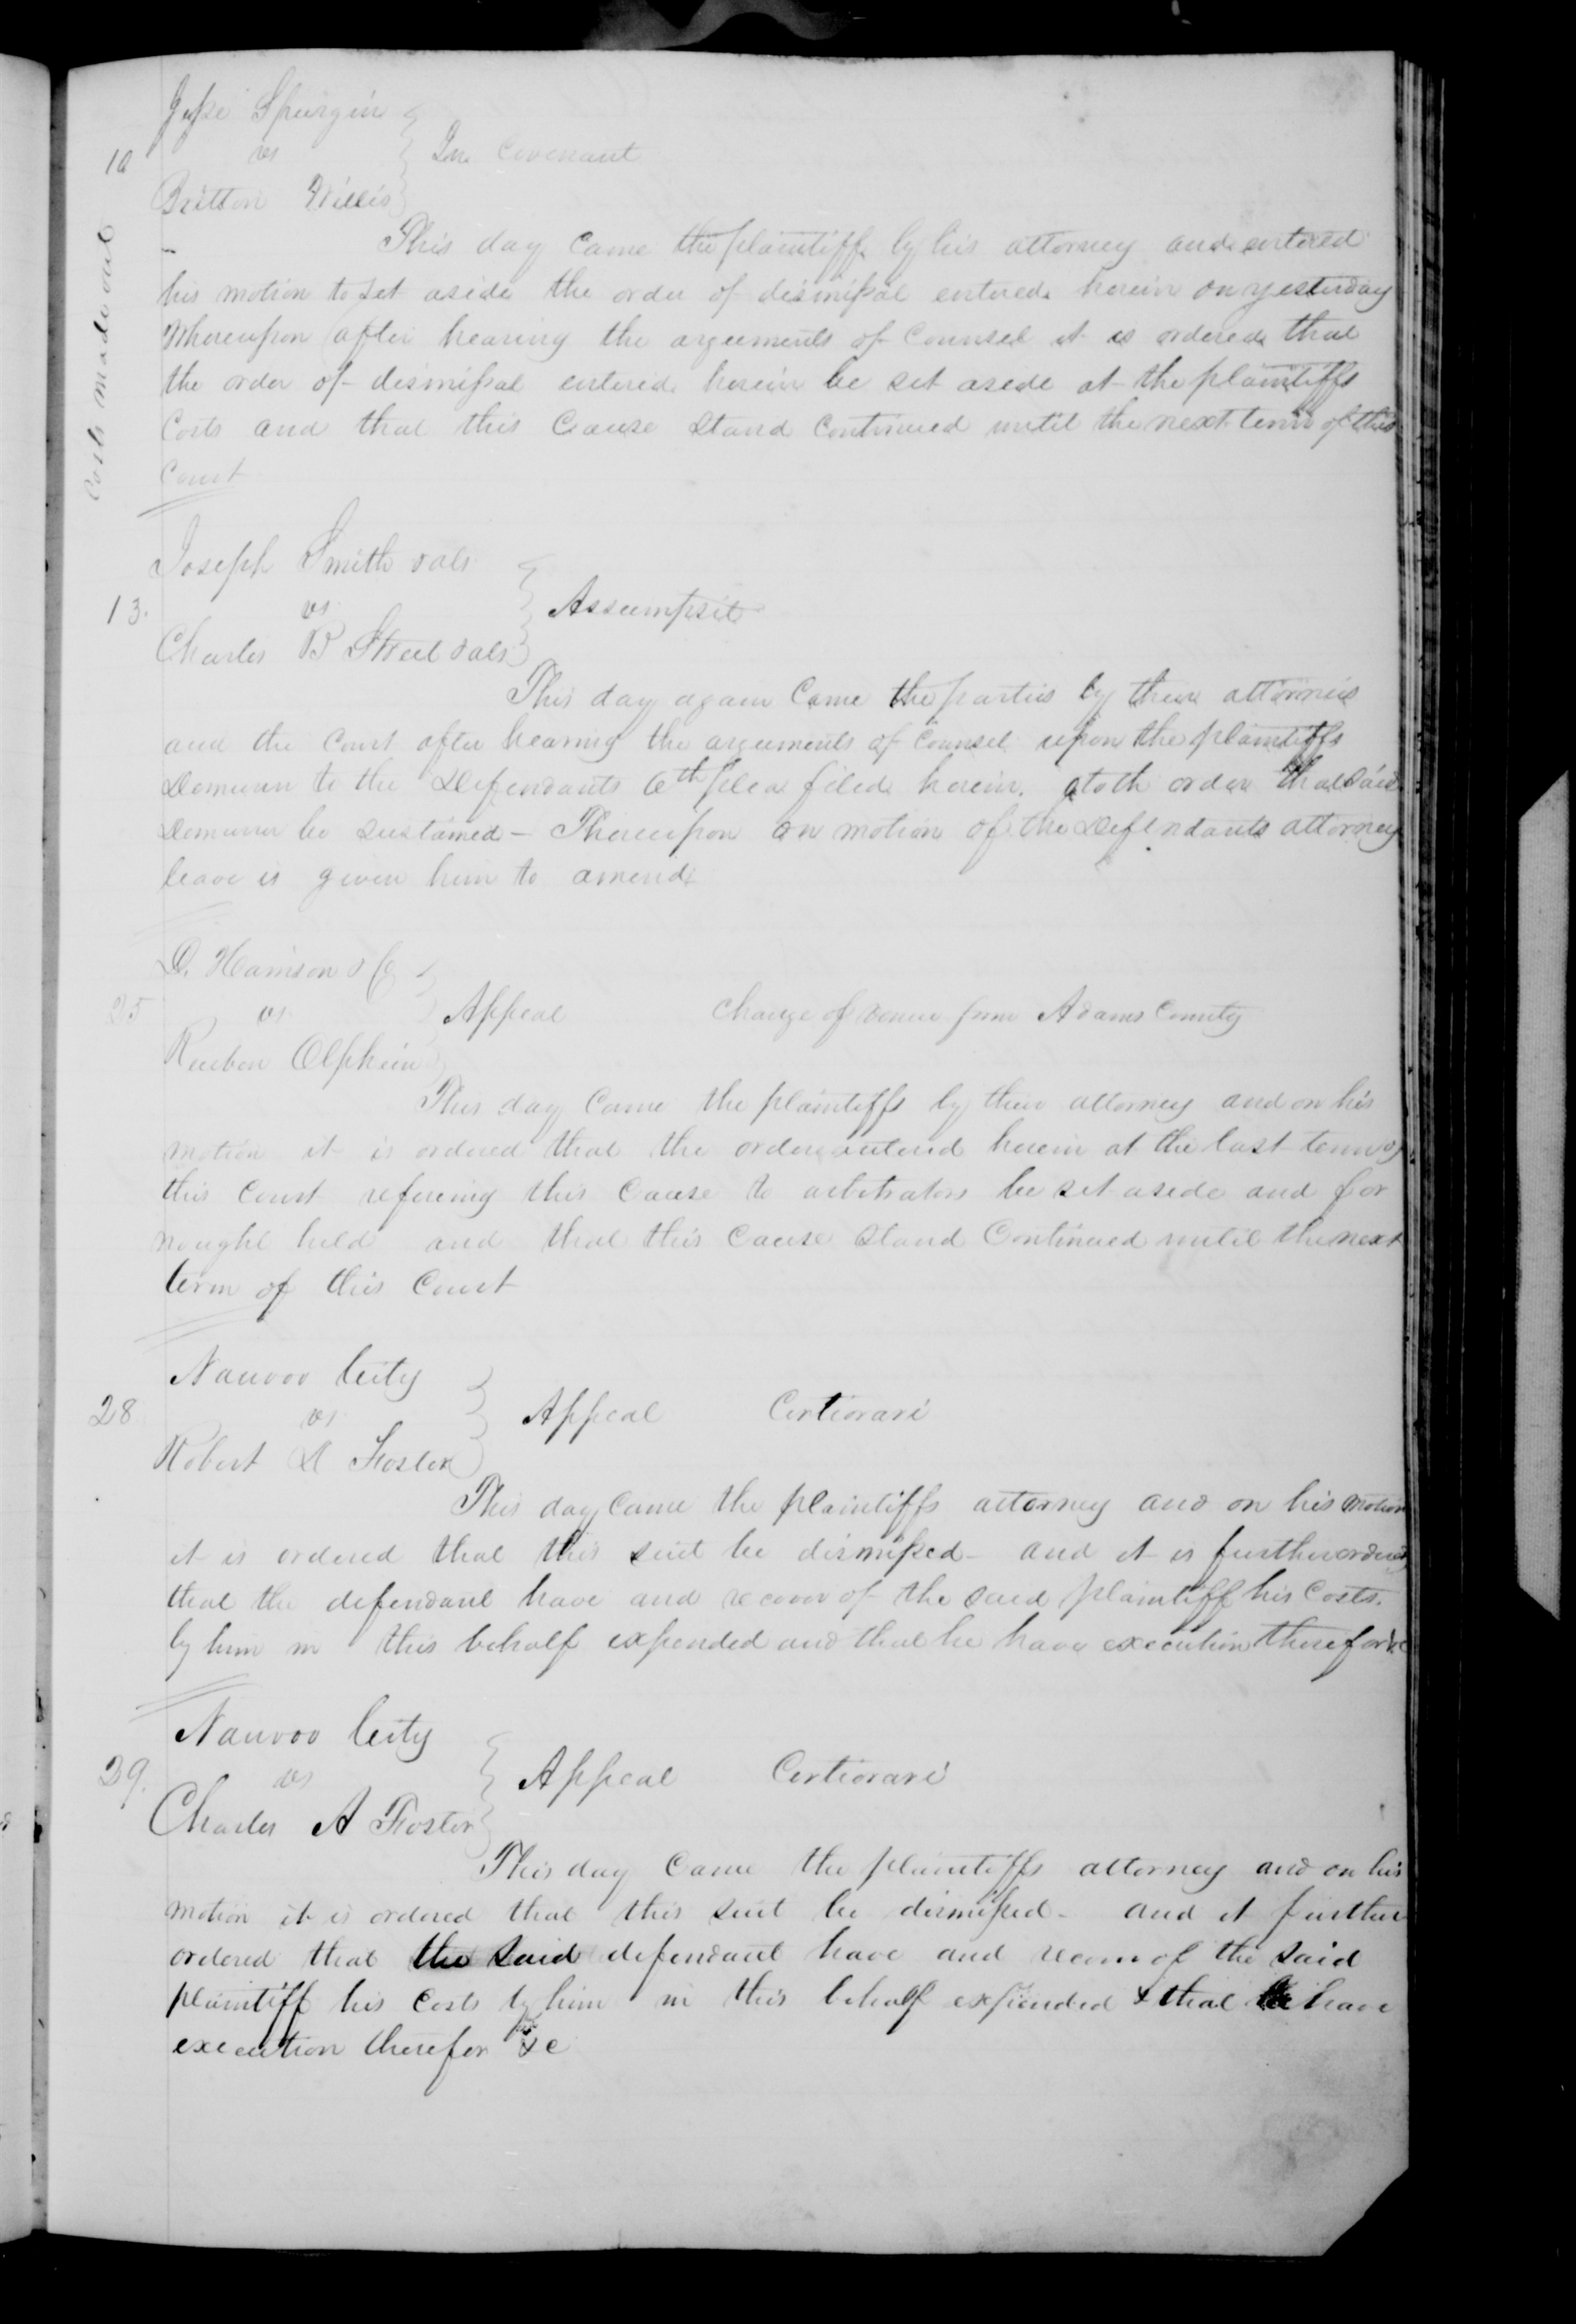 Jesse Spurgin
10 vs } In Covenant
Britton Willis
Costs made out
This day Came the plaintiff by his attorney and entered
his motion to set aside the order of dismissal entered herein on yesterday
Whereupon after hearing the arguements of Counsel it is ordered that
the order of dismissal entered herein be set aside at the plaintiffs
Costs and that this Cause Stand Continued until the next term of this
Court
Joseph Smith & als
13. vs } Assumpsit
Charles B Street & als
This day again Came the parties by their attornies
and the Court after hearing the arguements of Counsel upon the plaintiffs
Demurrer to the Defendants 6th plea filed herein. doth order that Said
Demurrer be sustained – Thereupon on motion of the Defendants attorney
leave is given him to amend
D. Harrison & Co
25 vs } Appeal Change of venue from Adams County
Reuben
This day Came the plaintiffs by their attorney and on his
motion it is ordered that the order entered herein at the last term of
this Court refering this Cause to arbitrators be set aside and for
nought held and that this Cause Stand Continued until the next
term of this Court
Nauvoo City
28 vs } Appeal Certiorari
Robert D Foster
This day Came the plaintiffs attorney and on his motion
it is ordered that this suit be dismissed – and it is further ordered
that the defendant have and recover of the said plaintiff his Costs.
by him in this behalf expended and that he have execution therefor &c
Nauvoo City
29. vs } Appeal Certiorari
Charles A Foster
This day Came the plaintiffs attorney and on his
motion it is ordered that this suit be dismissed – and it further
ordered that the said defendant have and recover of the said
plaintiff his Costs by him in this behalf expended & that he have
execution therefor &c